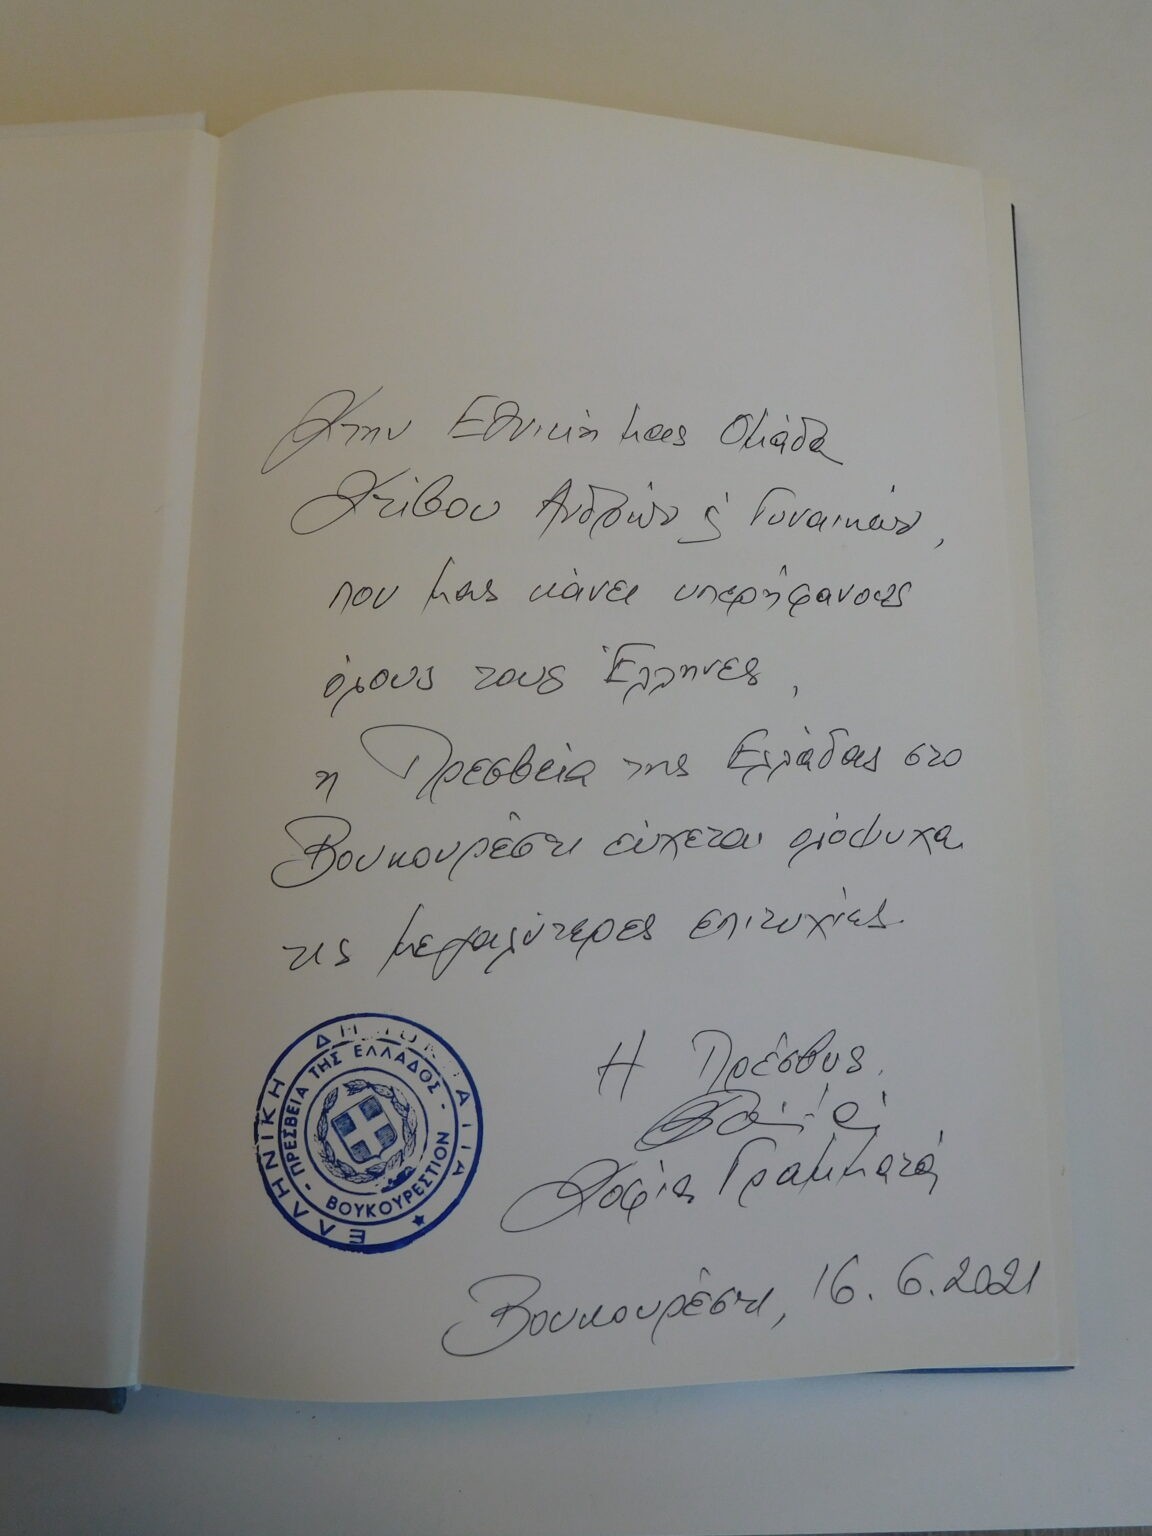 Στην Εθνική μας Ομάδα
Στίβου Ανδρών & Γυναικών,
που μας κάνει υπερήφανους
όλους τους Έλληνες,
η Πρεσβεία της Ελλάδας στο
Βουκουρέστι εύχεται ολόψυχα
τις μεγαλύτερες επιτυχίες.
Η Πρέσβυς
Σοφία Γραμματά
Βουκουρέστι, 16.6.2021
ΕΛΛΗΝΙΚΗ ΔΗΜΟΚΡΑΤΙΑ
ΠΡΕΣΒΕΙΑ ΤΗΣ ΕΛΛΑΔΟΣ - ΒΟΥΚΟΥΡΕΣΤΙΟΝ -